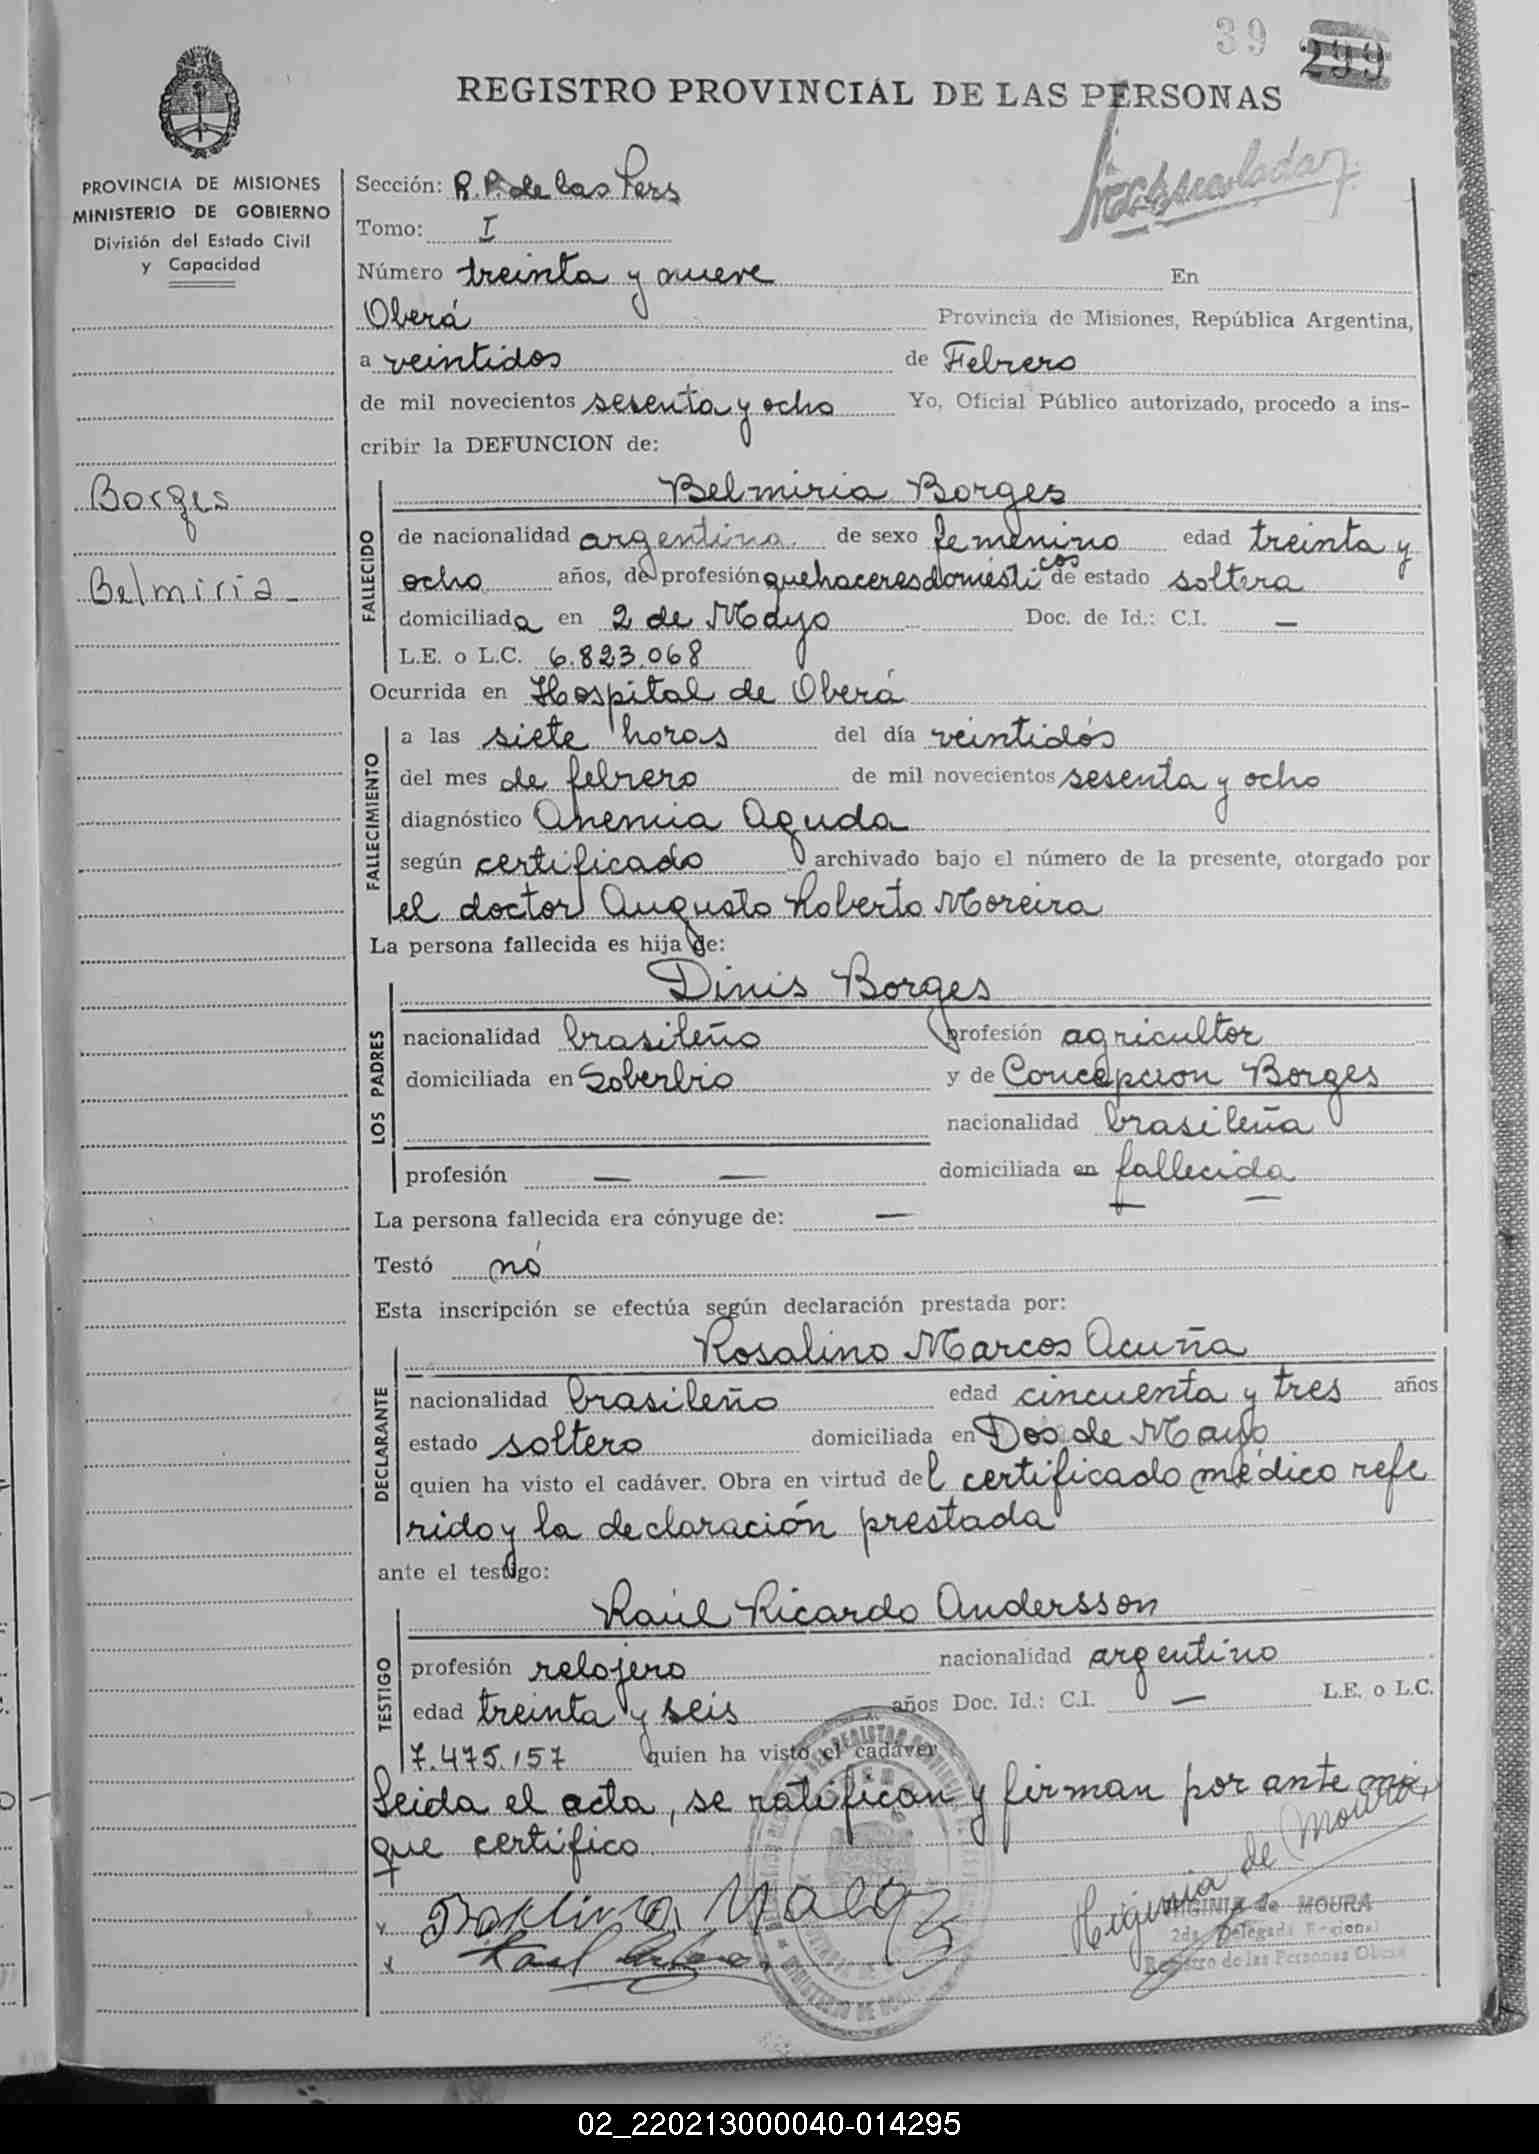 39 299
REGISTRO PROVINCIAL DE LAS PERSONAS
PROVINCIA DE MISIONES
MINISTERIO DE GOBIERNO
División del Estado Civil
y Capacidad
Borges
Belmiria
Sección: R.P. de las Pers
Tomo: I
Número treinta y nueve En
Oberá Provincia de Misiones, República Argentina,
a veintidos de Febrero
de mil novecientos sesenta y ocho Yo, Oficial Público autorizado, procedo a ins-
cribir la DEFUNCION de:
FALLECIDO
Belmiria Borges
de nacionalidad argentina de sexo femenino edad treinta y
ocho años, de profesión quehaceres domésticos de estado soltera
domiciliada en 2 de Mayo Doc. de Id.: C.I. —
L.E. o L.C. 6.823.068
Ocurrida en Hospital de Oberá
FALLECIMIENTO
a las siete horas del día veintidós
del mes de febrero de mil novecientos sesenta y ocho
diagnóstico Anemia Aguda
según certificado archivado bajo el número de la presente, otorgado por
el doctor Augusto Roberto Moreira
La persona fallecida es hija de:
LOS PADRES
Dinis Borges
nacionalidad brasileño profesión agricultor
domiciliada en Soberbio y de Concepcion Borges
nacionalidad brasileña
profesión — — domiciliada en fallecida
La persona fallecida era cónyuge de: —
Testó nó
Esta inscripción se efectúa según declaración prestada por:
DECLARANTE
Rosalino Marcos Acuña
nacionalidad brasileño edad cincuenta y tres años
estado soltero domiciliada en Dos de Mayo
quien ha visto el cadáver. Obra en virtud del certificado médico refe
rido y la declaración prestada
ante el testigo:
TESTIGO
Raúl Ricardo Andersson
profesión relojero nacionalidad argentino
edad treinta y seis años Doc. Id.: C.I. — L.E. o L.C.
7.475.157 quien ha visto el cadáver
Leida el acta, se ratifican y firman por ante mi,
que certifico.
Higinia de Moura
HIGINIA de MOURA
2da. Delegada Regional
Registro de las Personas Oberá
02_220213000040-014295